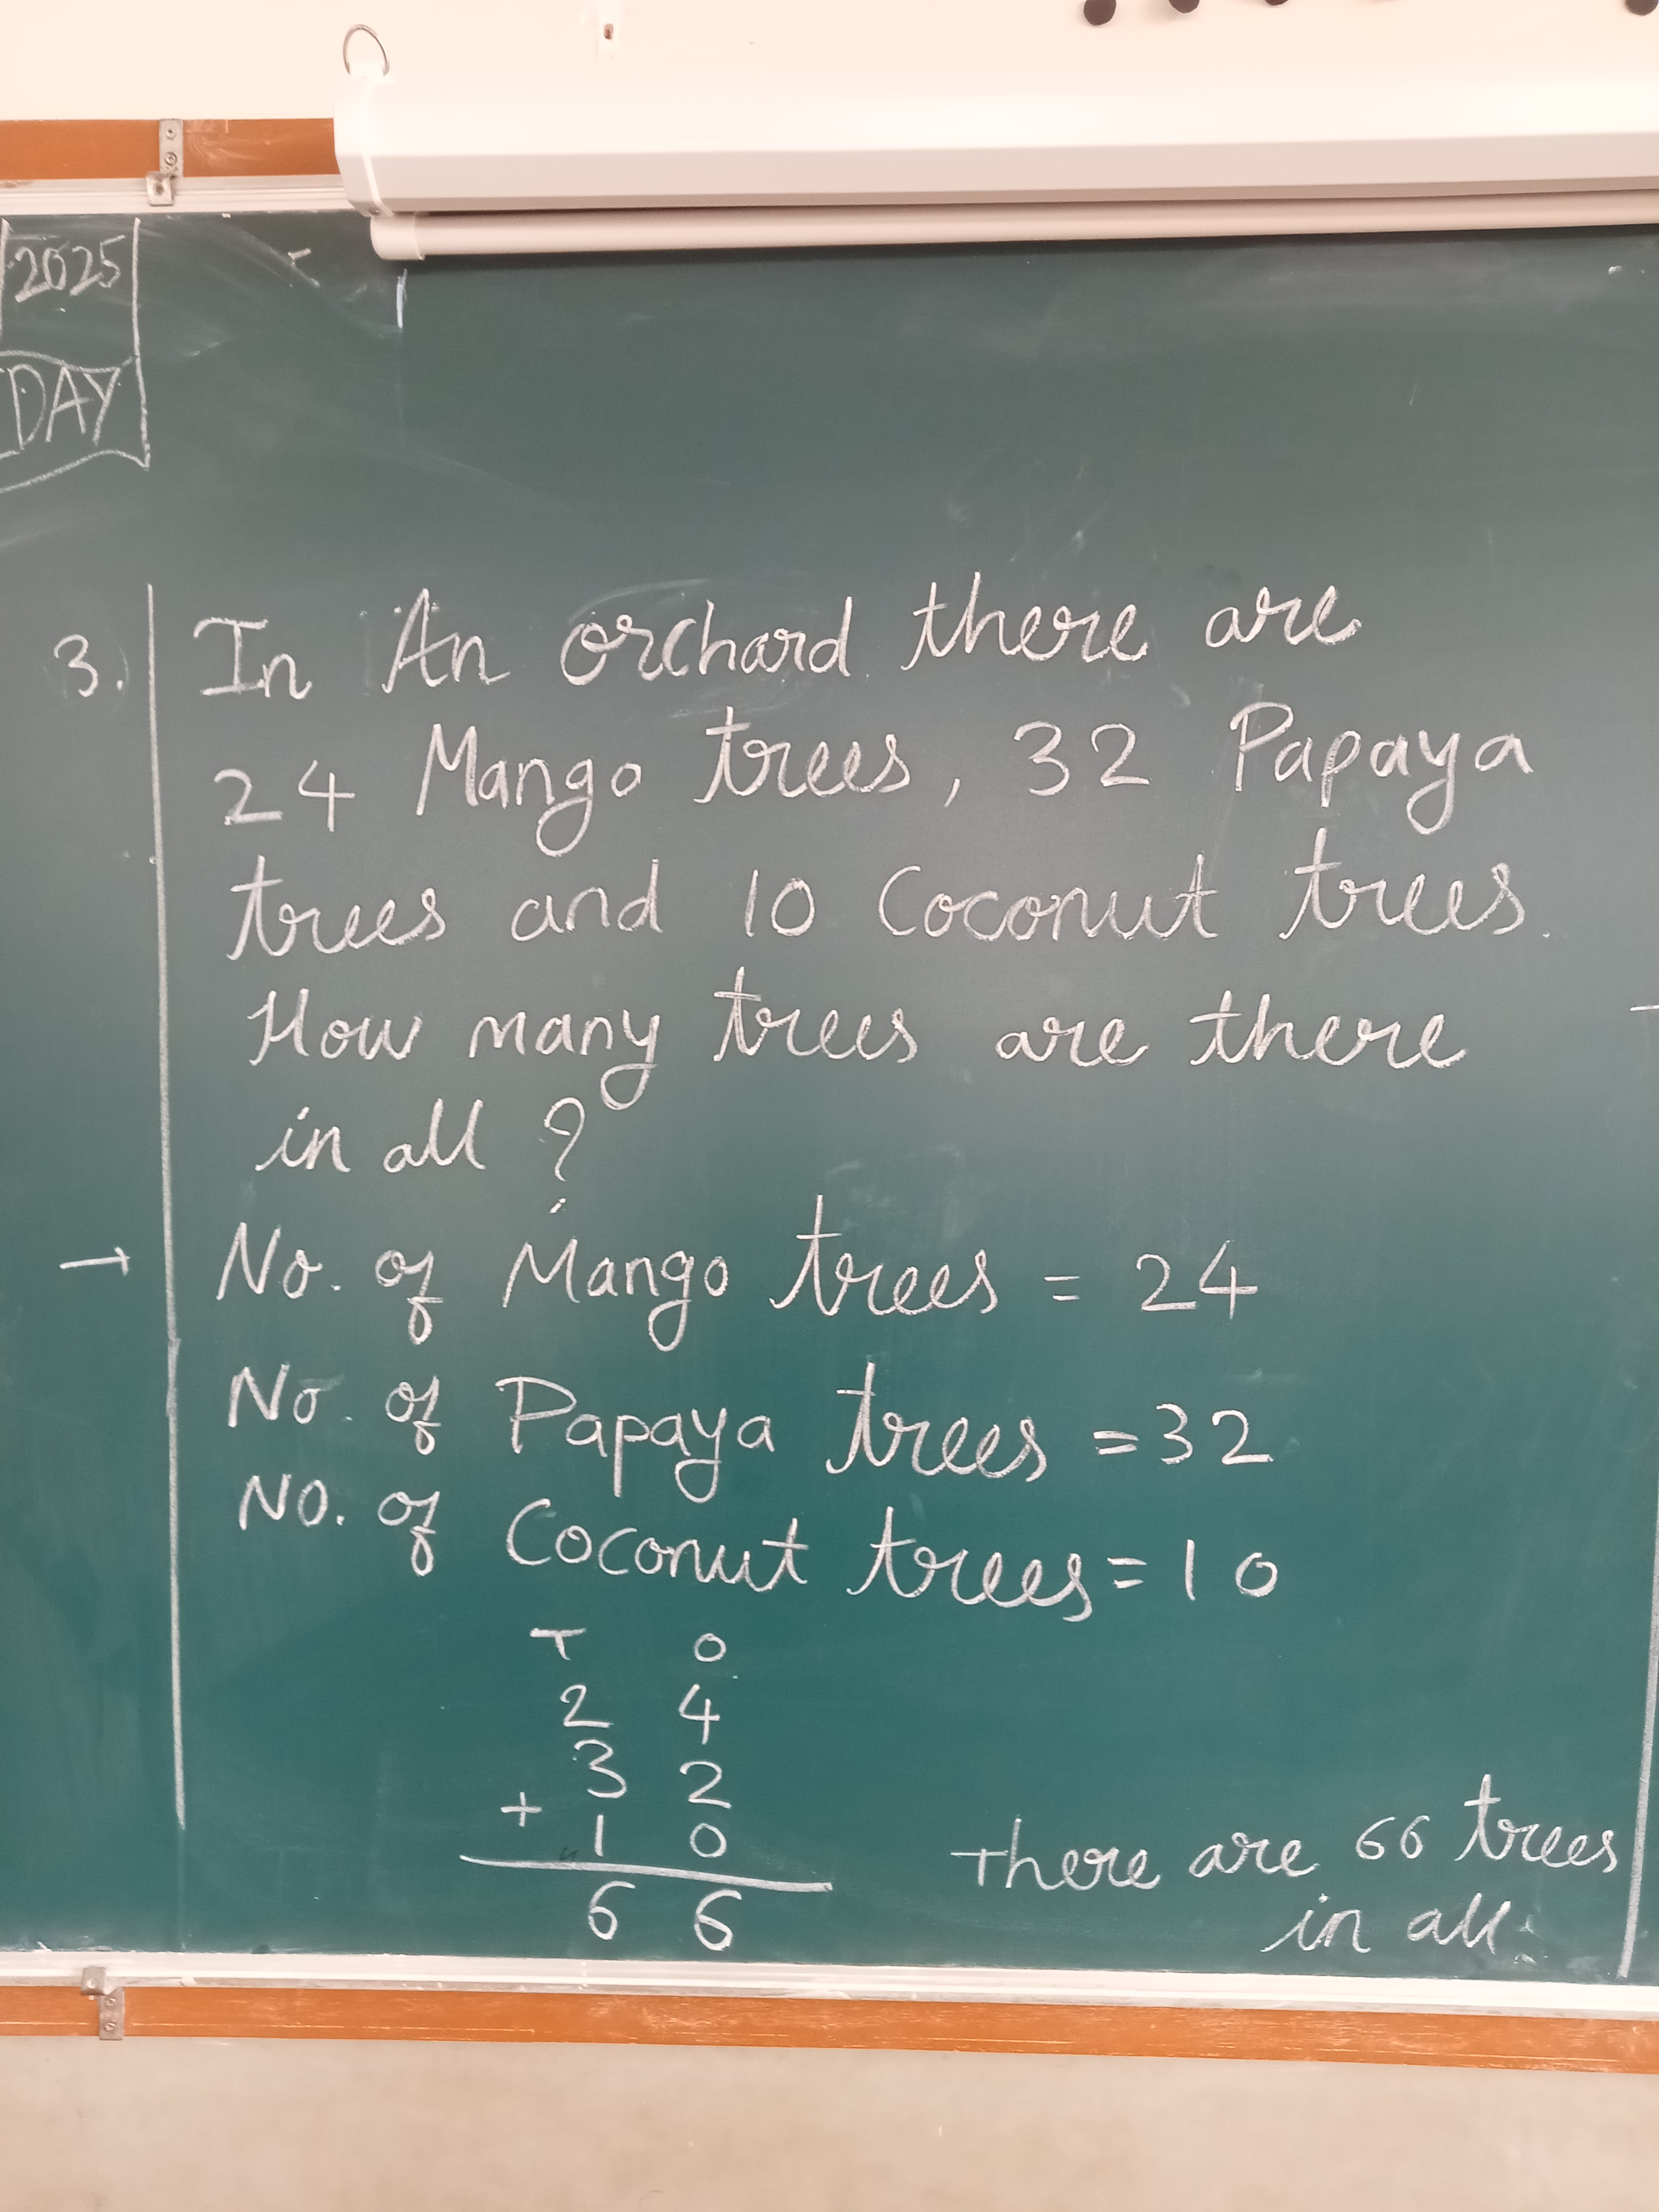 2025
DAY
3. In An orchard there are
24 Mango trees, 32 Papaya
trees and 10 Coconut trees.
How many trees are there
in all ?
→ No. of Mango trees = 24
No. of Papaya trees = 32
NO. of Coconut trees = 10
T O
2 4
3 2
+ 1 0
6 6
There are 66 trees
in all.